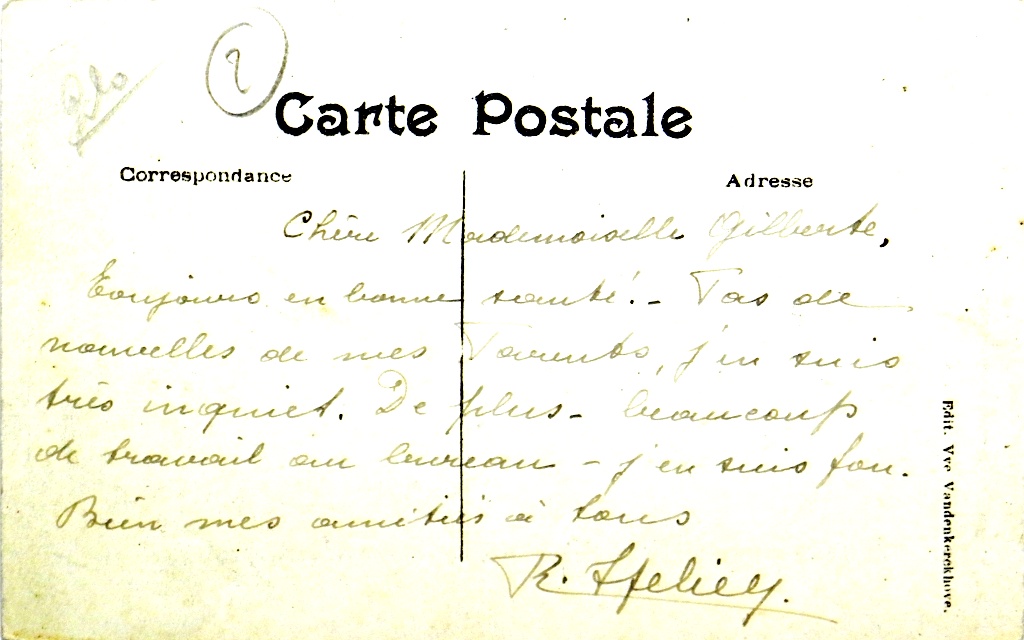 2
Carte Postale
Correspondance
Adresse
Chère Mademoiselle Gilberte,
Toujours en bonne santé! - Pas de
nouvelles de mes Parents, j'en suis
très inquiet. De plus - beaucoup
de travail au bureau - j'en suis fou.
Bien mes amitiés à tous
R.
Edit. Vve Vandenkerckhove.